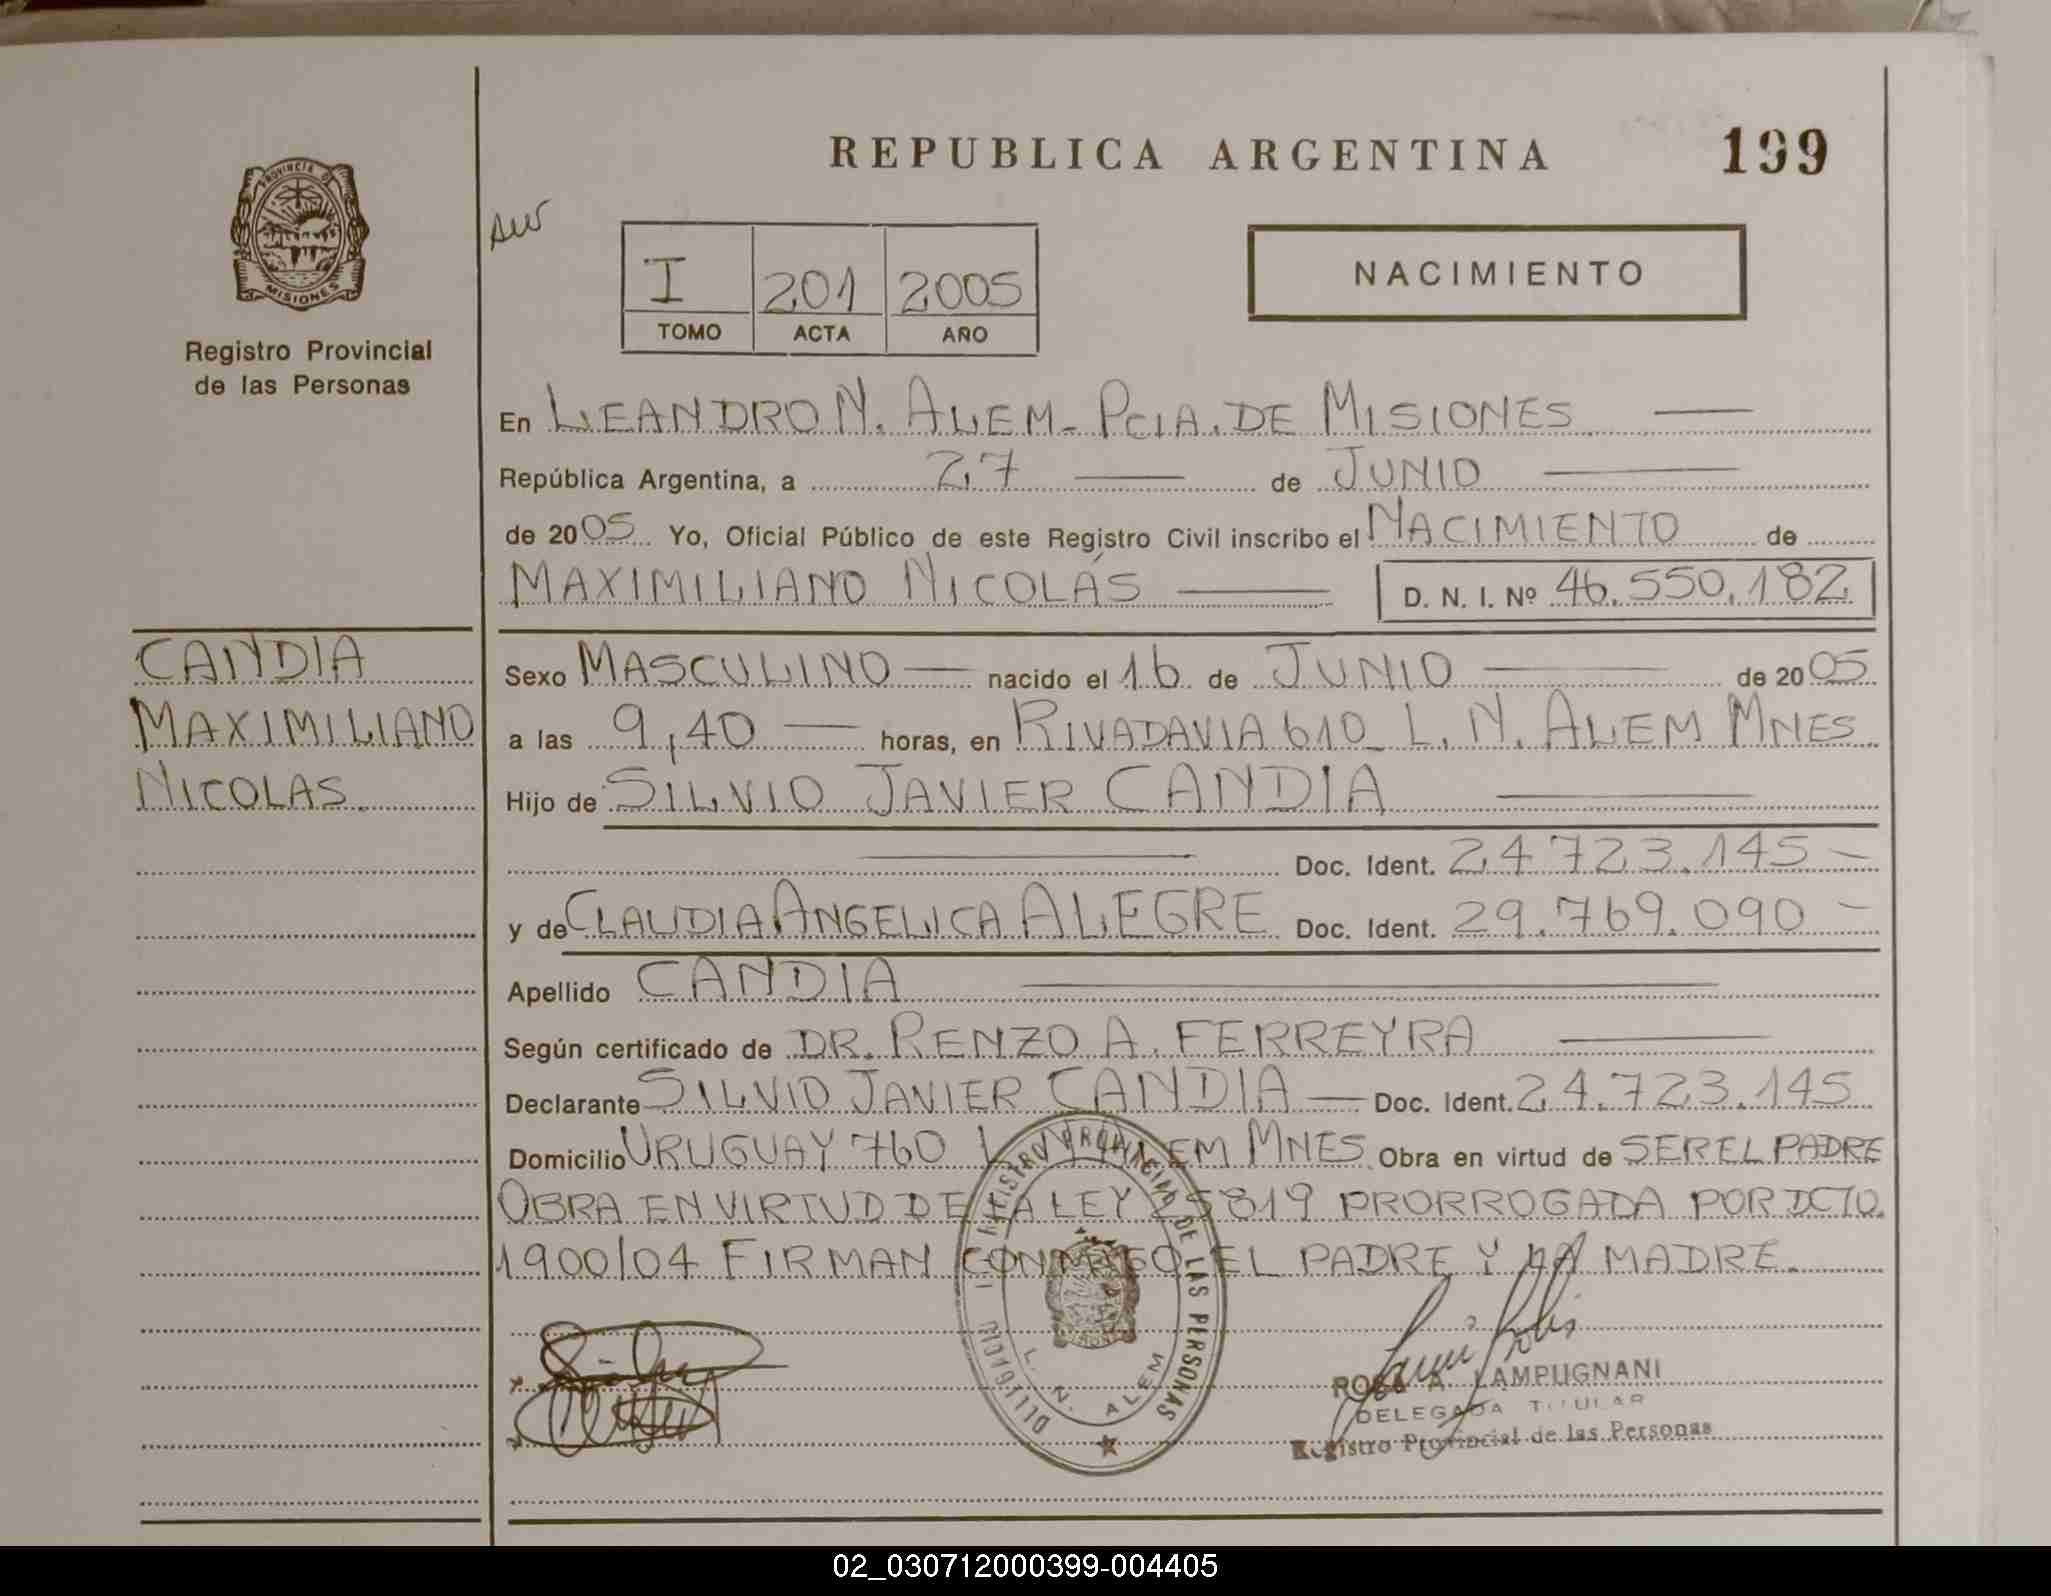 REPUBLICA ARGENTINA
199
PROVINCIA DE
MISIONES
Registro Provincial
de las Personas
I 201 2005
TOMO ACTA AÑO
NACIMIENTO
En LEANDRO N. ALEM - PCIA. DE MISIONES
República Argentina, a 27 de JUNIO
de 2005 Yo, Oficial Público de este Registro Civil inscribo el NACIMIENTO de
MAXIMILIANO NICOLÁS D. N. I. Nº 46.550.182
CANDIA
MAXIMILIANO
NICOLAS.
Sexo MASCULINO nacido el 16 de JUNIO de 2005
a las 9,40 horas, en RIVADAVIA 610 - L. N. ALEM MNES
Hijo de SILVIO JAVIER CANDIA
Doc. Ident. 24.723.145 -
y de CLAUDIA ANGELICA ALEGRE Doc. Ident. 29.769.090 -
Apellido CANDIA
Según certificado de DR. RENZO A. FERREYRA
Declarante SILVIO JAVIER CANDIA Doc. Ident. 24.723.145
Domicilio URUGUAY 760 L. N. ALEM MNES Obra en virtud de SER EL PADRE
OBRA EN VIRTUD DE LA LEY 25819 PRORROGADA POR DCTO.
1900/04 FIRMAN CONMIGO EL PADRE Y LA MADRE.
REGISTRO PROVINCIAL DE LAS PERSONAS
L. N. ALEM
ROSA A. LAMPUGNANI
DELEGADA TITULAR
Registro Provincial de las Personas
02_030712000399-004405